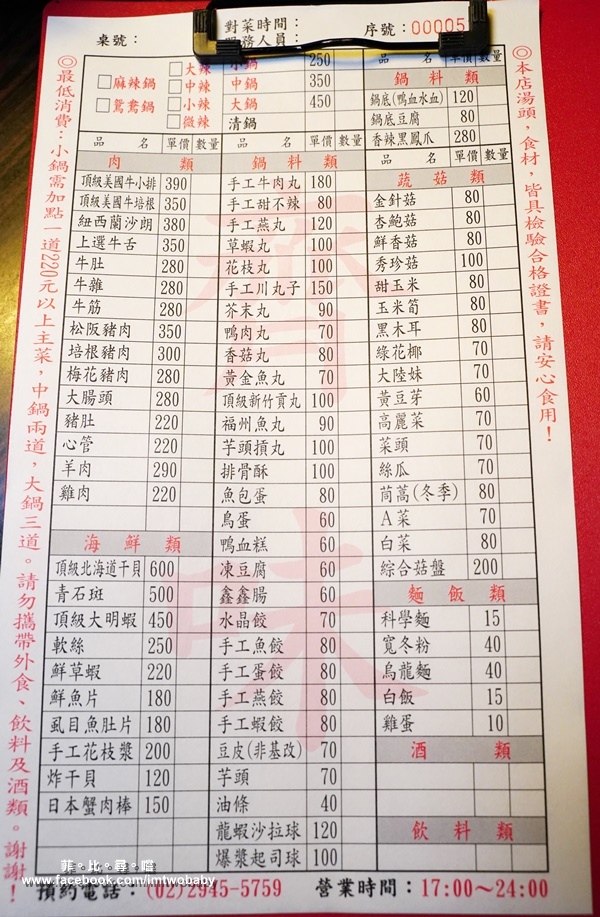 桌號：
對菜時間：
服務人員：
序號：00005
◎本店湯頭，食材，皆具檢驗合格證書，請安心食用！
◎最低消費：小鍋需加點一道220元以上主菜，中鍋兩道，大鍋三道。請勿攜帶外食、飲料及酒類。謝謝！
□麻辣鍋
□鴛鴦鍋
□大辣
□中辣
□小辣
□微辣
小鍋 250
中鍋 350
大鍋 450
清鍋
品名 單價 數量
肉類
頂級美國牛小排 390
頂級美國牛培根 350
紐西蘭沙朗 380
上選牛舌 350
牛肚 280
牛雜 280
牛筋 280
松阪豬肉 350
培根豬肉 300
梅花豬肉 280
大腸頭 280
豬肚 220
心管 220
羊肉 290
雞肉 220
海鮮類
頂級北海道干貝 600
青石斑 500
頂級大明蝦 450
軟絲 250
鮮草蝦 220
鮮魚片 180
虱目魚肚片 180
手工花枝漿 200
炸干貝 120
日本蟹肉棒 150
品名 單價 數量
鍋料類
手工牛肉丸 180
手工甜不辣 80
手工燕丸 120
草蝦丸 100
花枝丸 100
手工川丸子 150
芥末丸 90
鴨肉丸 70
香菇丸 80
黃金魚丸 70
頂級新竹貢丸 100
福州魚丸 90
芋頭摃丸 100
排骨酥 100
魚包蛋 80
鳥蛋 60
鴨血糕 60
凍豆腐 60
鑫鑫腸 60
水晶餃 70
手工魚餃 80
手工蛋餃 80
手工燕餃 80
手工蝦餃 80
豆皮(非基改) 70
芋頭 70
油條 40
龍蝦沙拉球 120
爆漿起司球 100
品名 單價 數量
鍋料類
鍋底(鴨血水血) 120
鍋底豆腐 80
香辣黑鳳爪 280
品名 單價 數量
蔬菇類
金針菇 80
杏鮑菇 80
鮮香菇 80
秀珍菇 100
甜玉米 80
玉米筍 80
黑木耳 80
綠花椰 70
大陸妹 70
黃豆芽 60
高麗菜 70
菜頭 70
絲瓜 70
茼蒿(冬季) 80
A菜 70
白菜 80
綜合菇盤 200
麵飯類
科學麵 15
寬冬粉 40
烏龍麵 40
白飯 15
雞蛋 10
酒類
飲料類
齊味
預約電話：(02)2945-5759 營業時間：17:00～24:00
菲。比。尋。嚐
www.facebook.com/imtwobaby